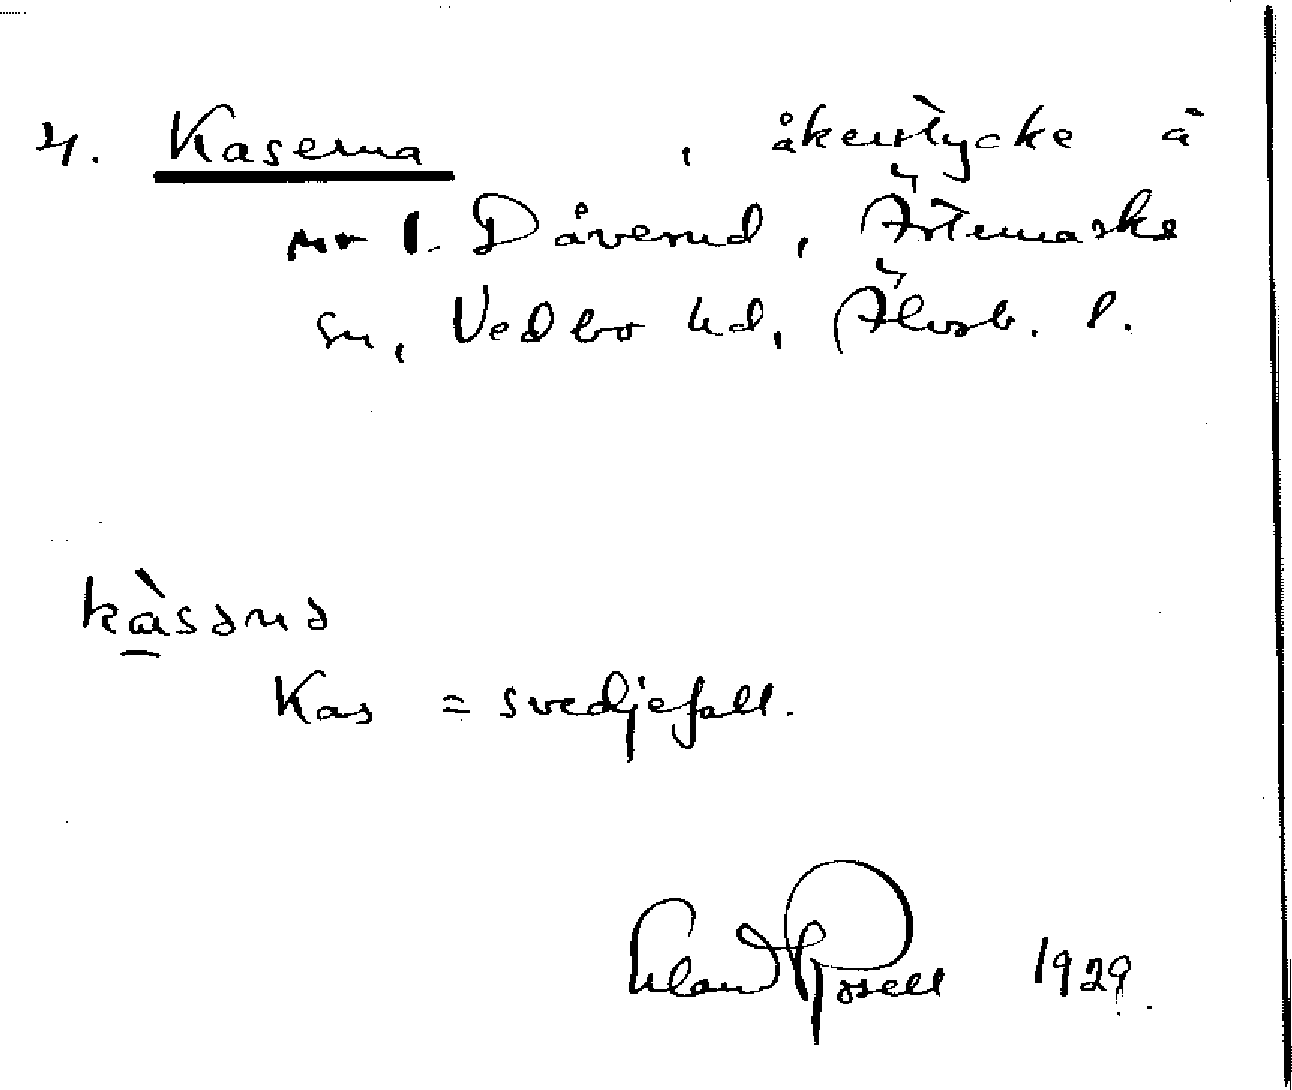 4. Kaserna, åkerstycke å
nr 1. Dåverud, Ärtemarks
sn, Vedbo hd, Älvsb. l.
kàsənə
Kas = svedjefall.
Erland Rosell 1929